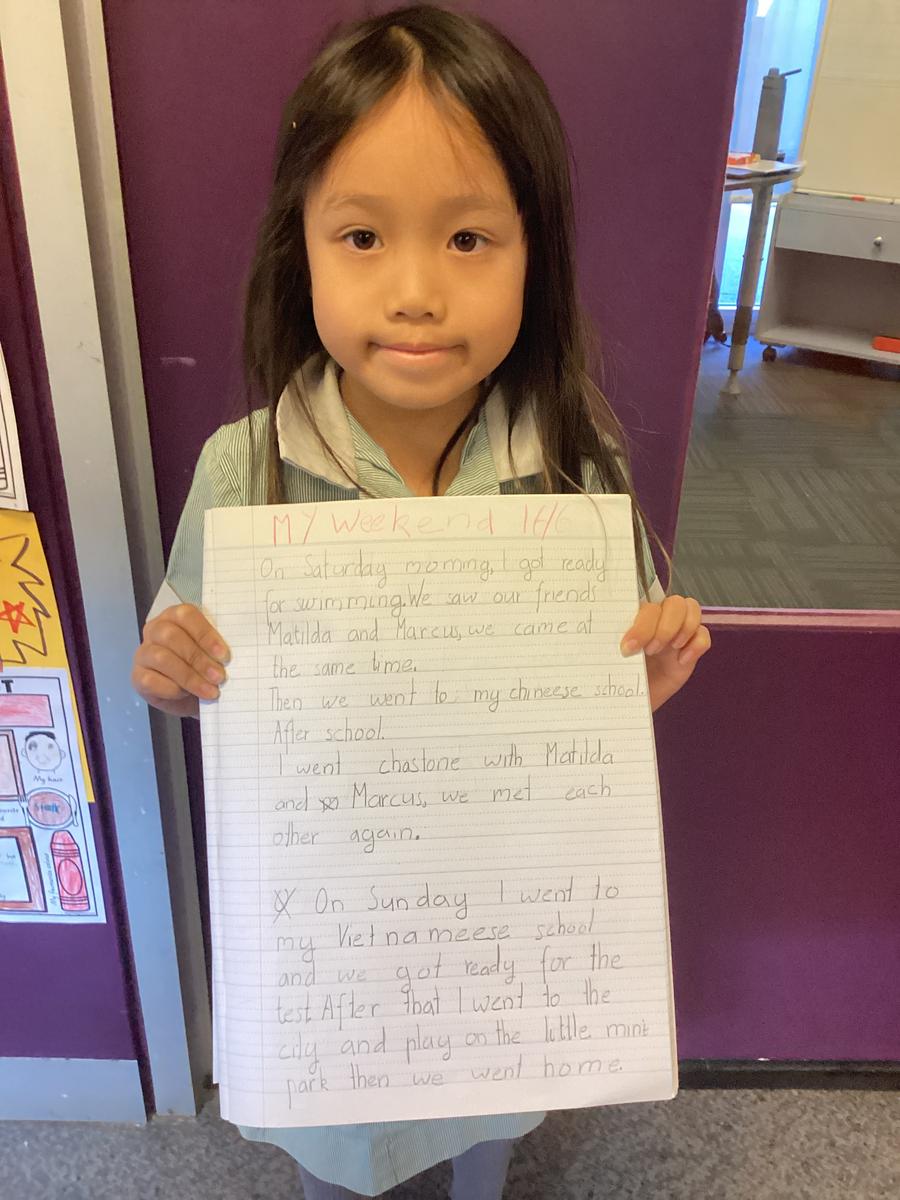 MY Weekend 16/6
On Saturday morning, I got ready
for swimming.We saw our friends
Matilda and Marcus, we came at
the same time.
Then we went to my chineese school.
After school.
I went chastone with Matilda
and Marcus, we met each
other again.
On Sunday I went to
my Vietnameese school
and we got ready for the
test.After that I went to the
city and play on the little mini
park then we went home.
T
My hair
Steak
My favourite colour